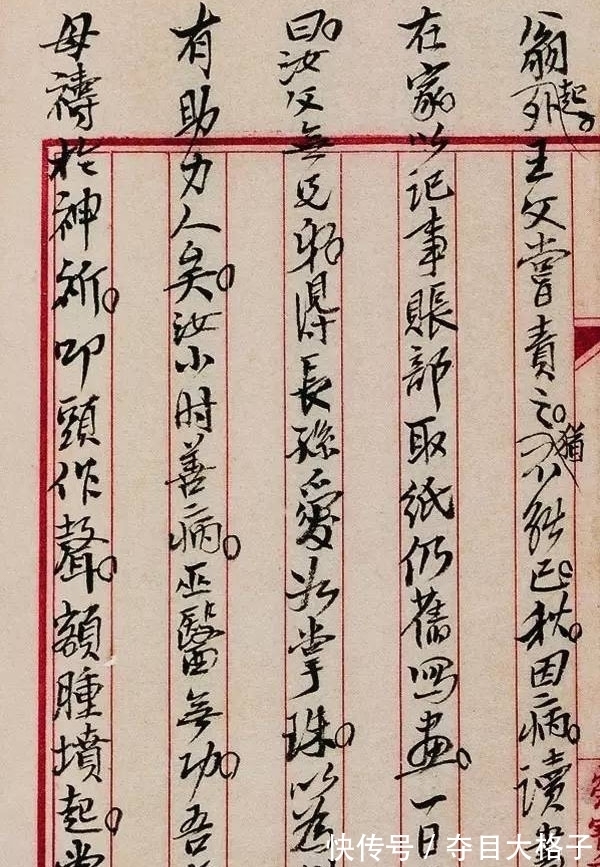 翁死起。王父嘗責之。猶不能已。秋。因病。讀書
在家以記事賬部取紙仍舊寫畫。一日
曰。汝父無兄弟。得長孫愛如掌珠。以為
有助力人矣。汝小时善病。巫醫無功。吾
母禱於神祈。叩頭作聲。額腫墳起。嘗
快传号 / 夺目大格子